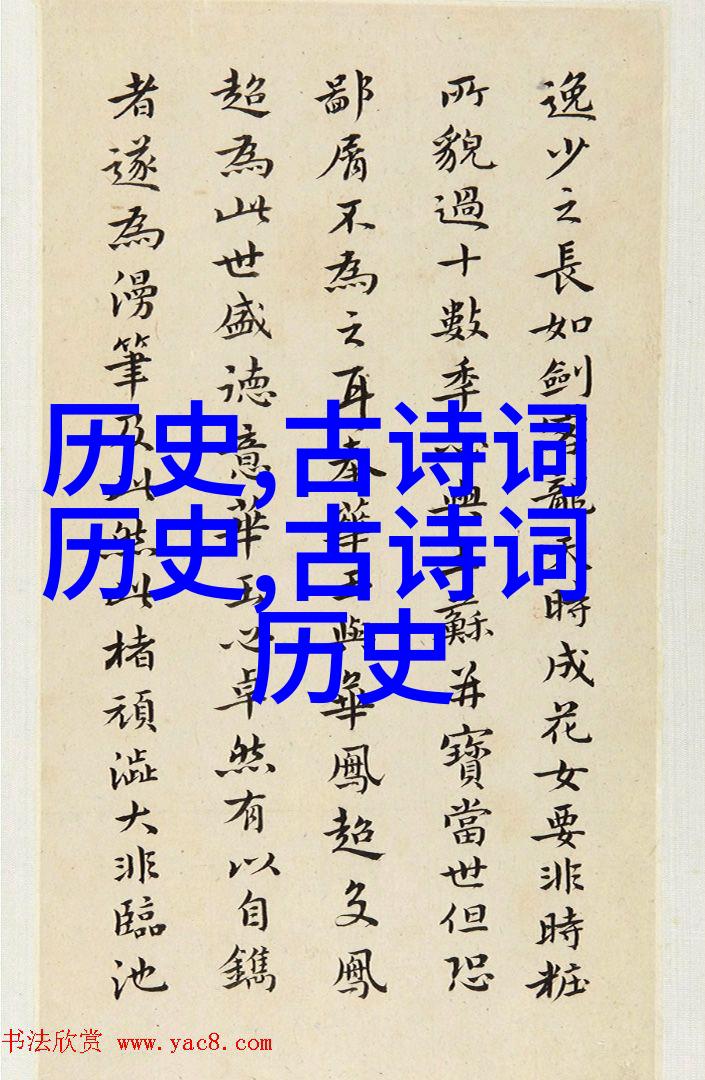 逸少之長如劍
時成花女要非時粧
所貌過十數季
蘇并寶當世但恐
鄙屑不為之耳奉華
與華鳳超文鳳
超為此世盛德意華玉心卓然有以自鐫
者遂為漫筆及此然此楮頑澁大非臨池
历史,古诗词
历史,古诗词
历史
书法欣赏 www.yac8.com